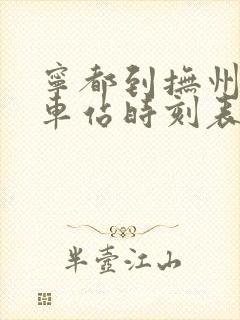 寧都到撫州
車站時刻表
半壺江山